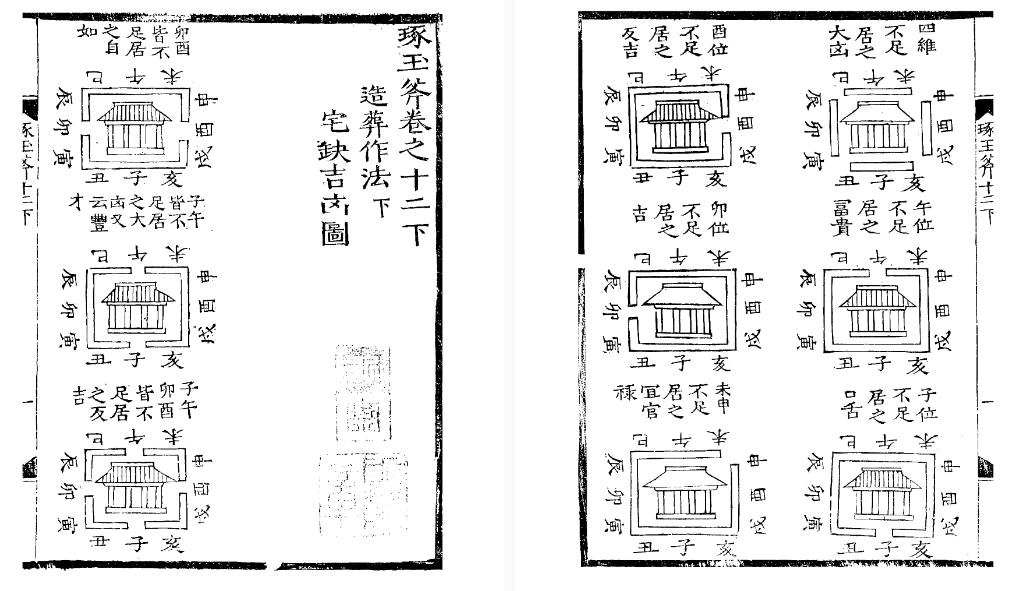 琢玉斧卷之十二下
造葬作法下
宅缺吉凶圖
卯酉
皆不
足居
之自
如
巳 午 未
辰 申
卯 酉
寅 戌
丑 子 亥
子午
皆不
足居
之大
凶又
云豐
才
巳 午 未
辰 申
卯 酉
寅 戌
丑 子 亥
子午
卯酉
皆不
足居
之反
吉
巳 午 未
辰 申
卯 酉
寅 戌
丑 子 亥
琢玉斧十二下
一
琢玉斧十二下
一
四維
不足
居之
大凶
巳 午 未
辰 申
卯 酉
寅 戌
丑 子 亥
午位
不足
居之
富貴
巳 午 未
辰 申
卯 酉
寅 戌
丑 子 亥
子位
不足
居之
口舌
巳 午 未
辰 申
卯 酉
寅 戌
丑 子 亥
酉位
不足
居之
反吉
巳 午 未
辰 申
卯 酉
寅 戌
丑 子 亥
卯位
不足
居之
吉
巳 午 未
辰 申
卯 酉
寅 戌
丑 子 亥
未申
不足
居之
宜官
祿
巳 午 未
辰 申
卯 酉
寅 戌
丑 子 亥